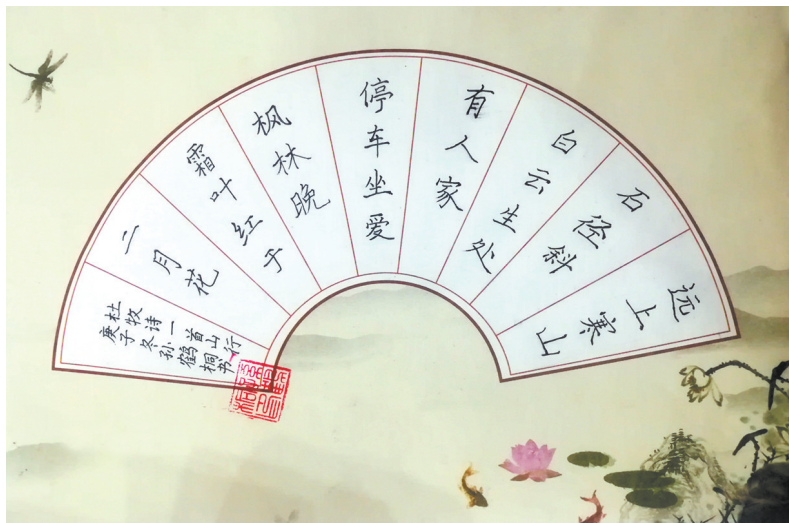 远上寒山
石径斜
白云生处
有人家
停车坐爱
枫林晚
霜叶红于
二月花
杜牧诗一首山行
庚子冬孙鹤桐书